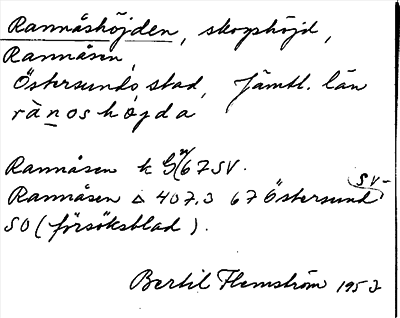 Rannåshöjden, skogshöjd,
Rannåsen,
Östersunds stad, Jämtl. län
rànoshøjda
Rannåsen k 67 SV.
Rannåsen △ 407.3 67 Östersund SV-
SO (försöksblad).
Bertil Flemström 1952